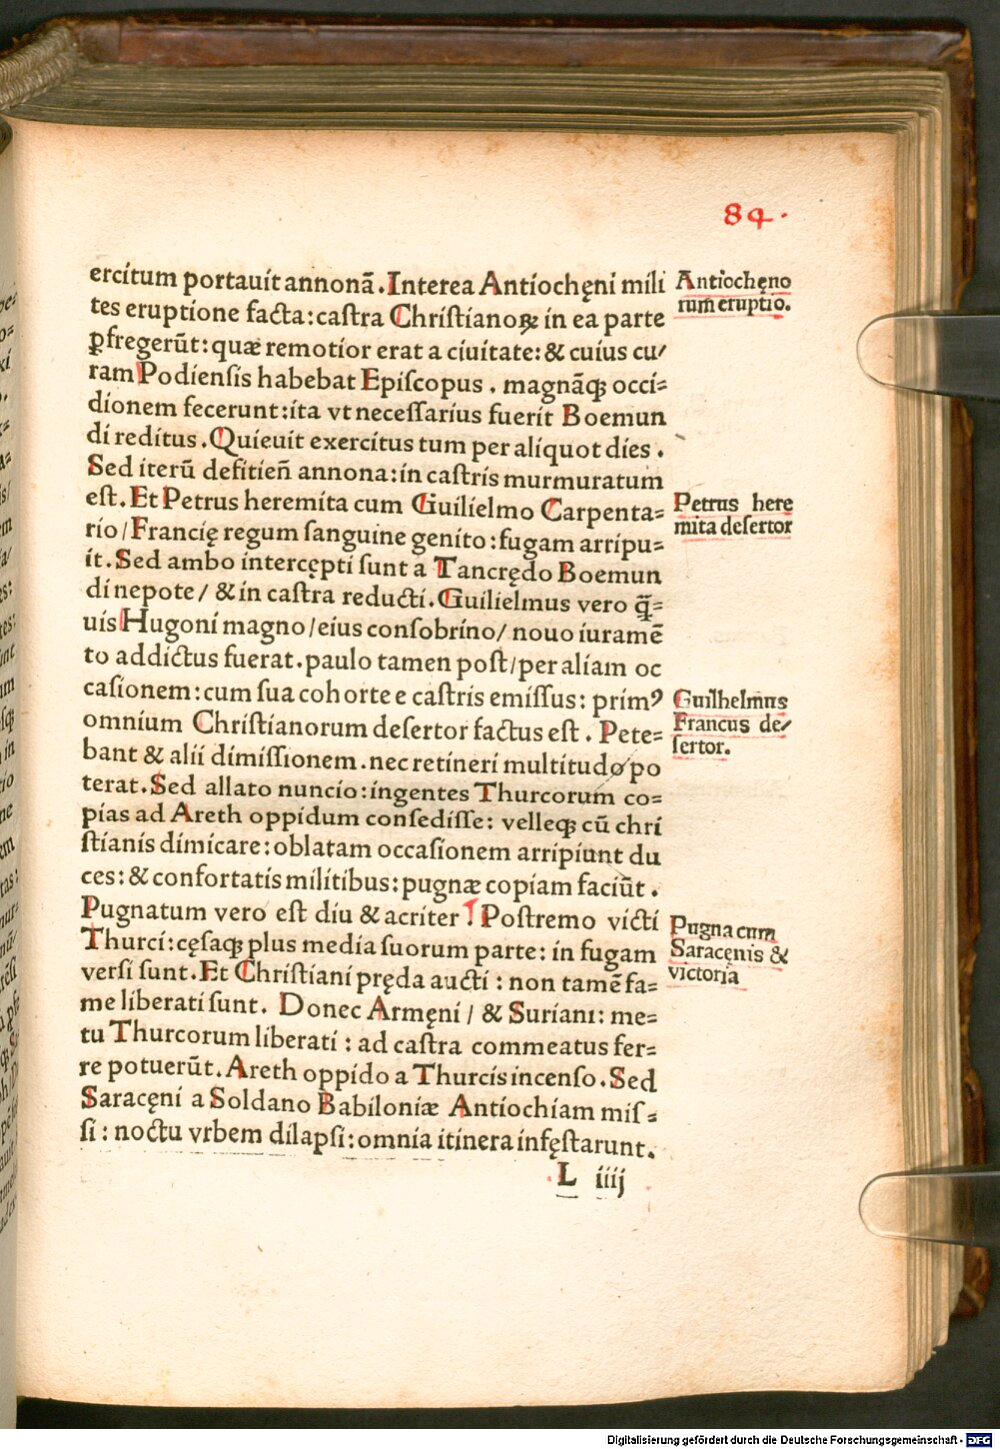 84.
ercitum portauit annonã. Interea Antiochęni mili
tes eruptione facta: caſtra Chriſtianoꝝ in ea parte
ꝑfregerũt: quæ remotior erat a ciuitate: & cuius cu/
ram Podienſis habebat Epiſcopus. magnãqꝫ occi=
dionem fecerunt: ita vt neceſſarius fuerit Boemun
di reditus. Quieuit exercitus tum per aliquot dies.
Sed iterũ defitieñ annona: in caſtris murmuratum
eſt. Et Petrus heremita cum Guilielmo Carpenta=
rio/ Francię regum ſanguine genito: fugam arripu=
it. Sed ambo intercępti ſunt a Tancrędo Boemun
di nepote/ & in caſtra reducti. Guilielmus vero q̃=
uis Hugoni magno/ eius conſobrino/ nouo iuramẽ
to addictus fuerat. paulo tamen poſt/ per aliam oc
caſionem: cum ſua cohorte e caſtris emiſſus: primꝰ
omnium Chriſtianorum deſertor factus eſt. Pete=
bant & alii dimiſſionem. nec retineri multitudo po
terat. Sed allato nuncio: ingentes Thurcorum co=
pias ad Areth oppidum conſediſſe: velleqꝫ cũ chri
ſtianis dimicare: oblatam occaſionem arripiunt du
ces: & confortatis militibus: pugnæ copiam faciũt.
Pugnatum vero eſt diu & acriter! Poſtremo victi
Thurci: cęſaqꝫ plus media ſuorum parte: in fugam
verſi ſunt. Et Chriſtiani pręda aucti: non tamẽ fa=
me liberati ſunt. Donec Armęni/ & Suriani: me=
tu Thurcorum liberati: ad caſtra commeatus fer=
re potuerũt. Areth oppido a Thurcis incenſo. Sed
Saracęni a Soldano Babiloniæ Antiochiam miſ=
ſi: noctu vrbem dilapſi: omnia itinera infęſtarunt.
L iiij
Antiochęno
rum eruptio.
Petrus here
mita deſertor
Guilhelmus
Francus de/
ſertor.
Pugna cum
Saracęnis &
victoria
Digitalisierung gefördert durch die Deutsche Forschungsgemeinschaft - DFG